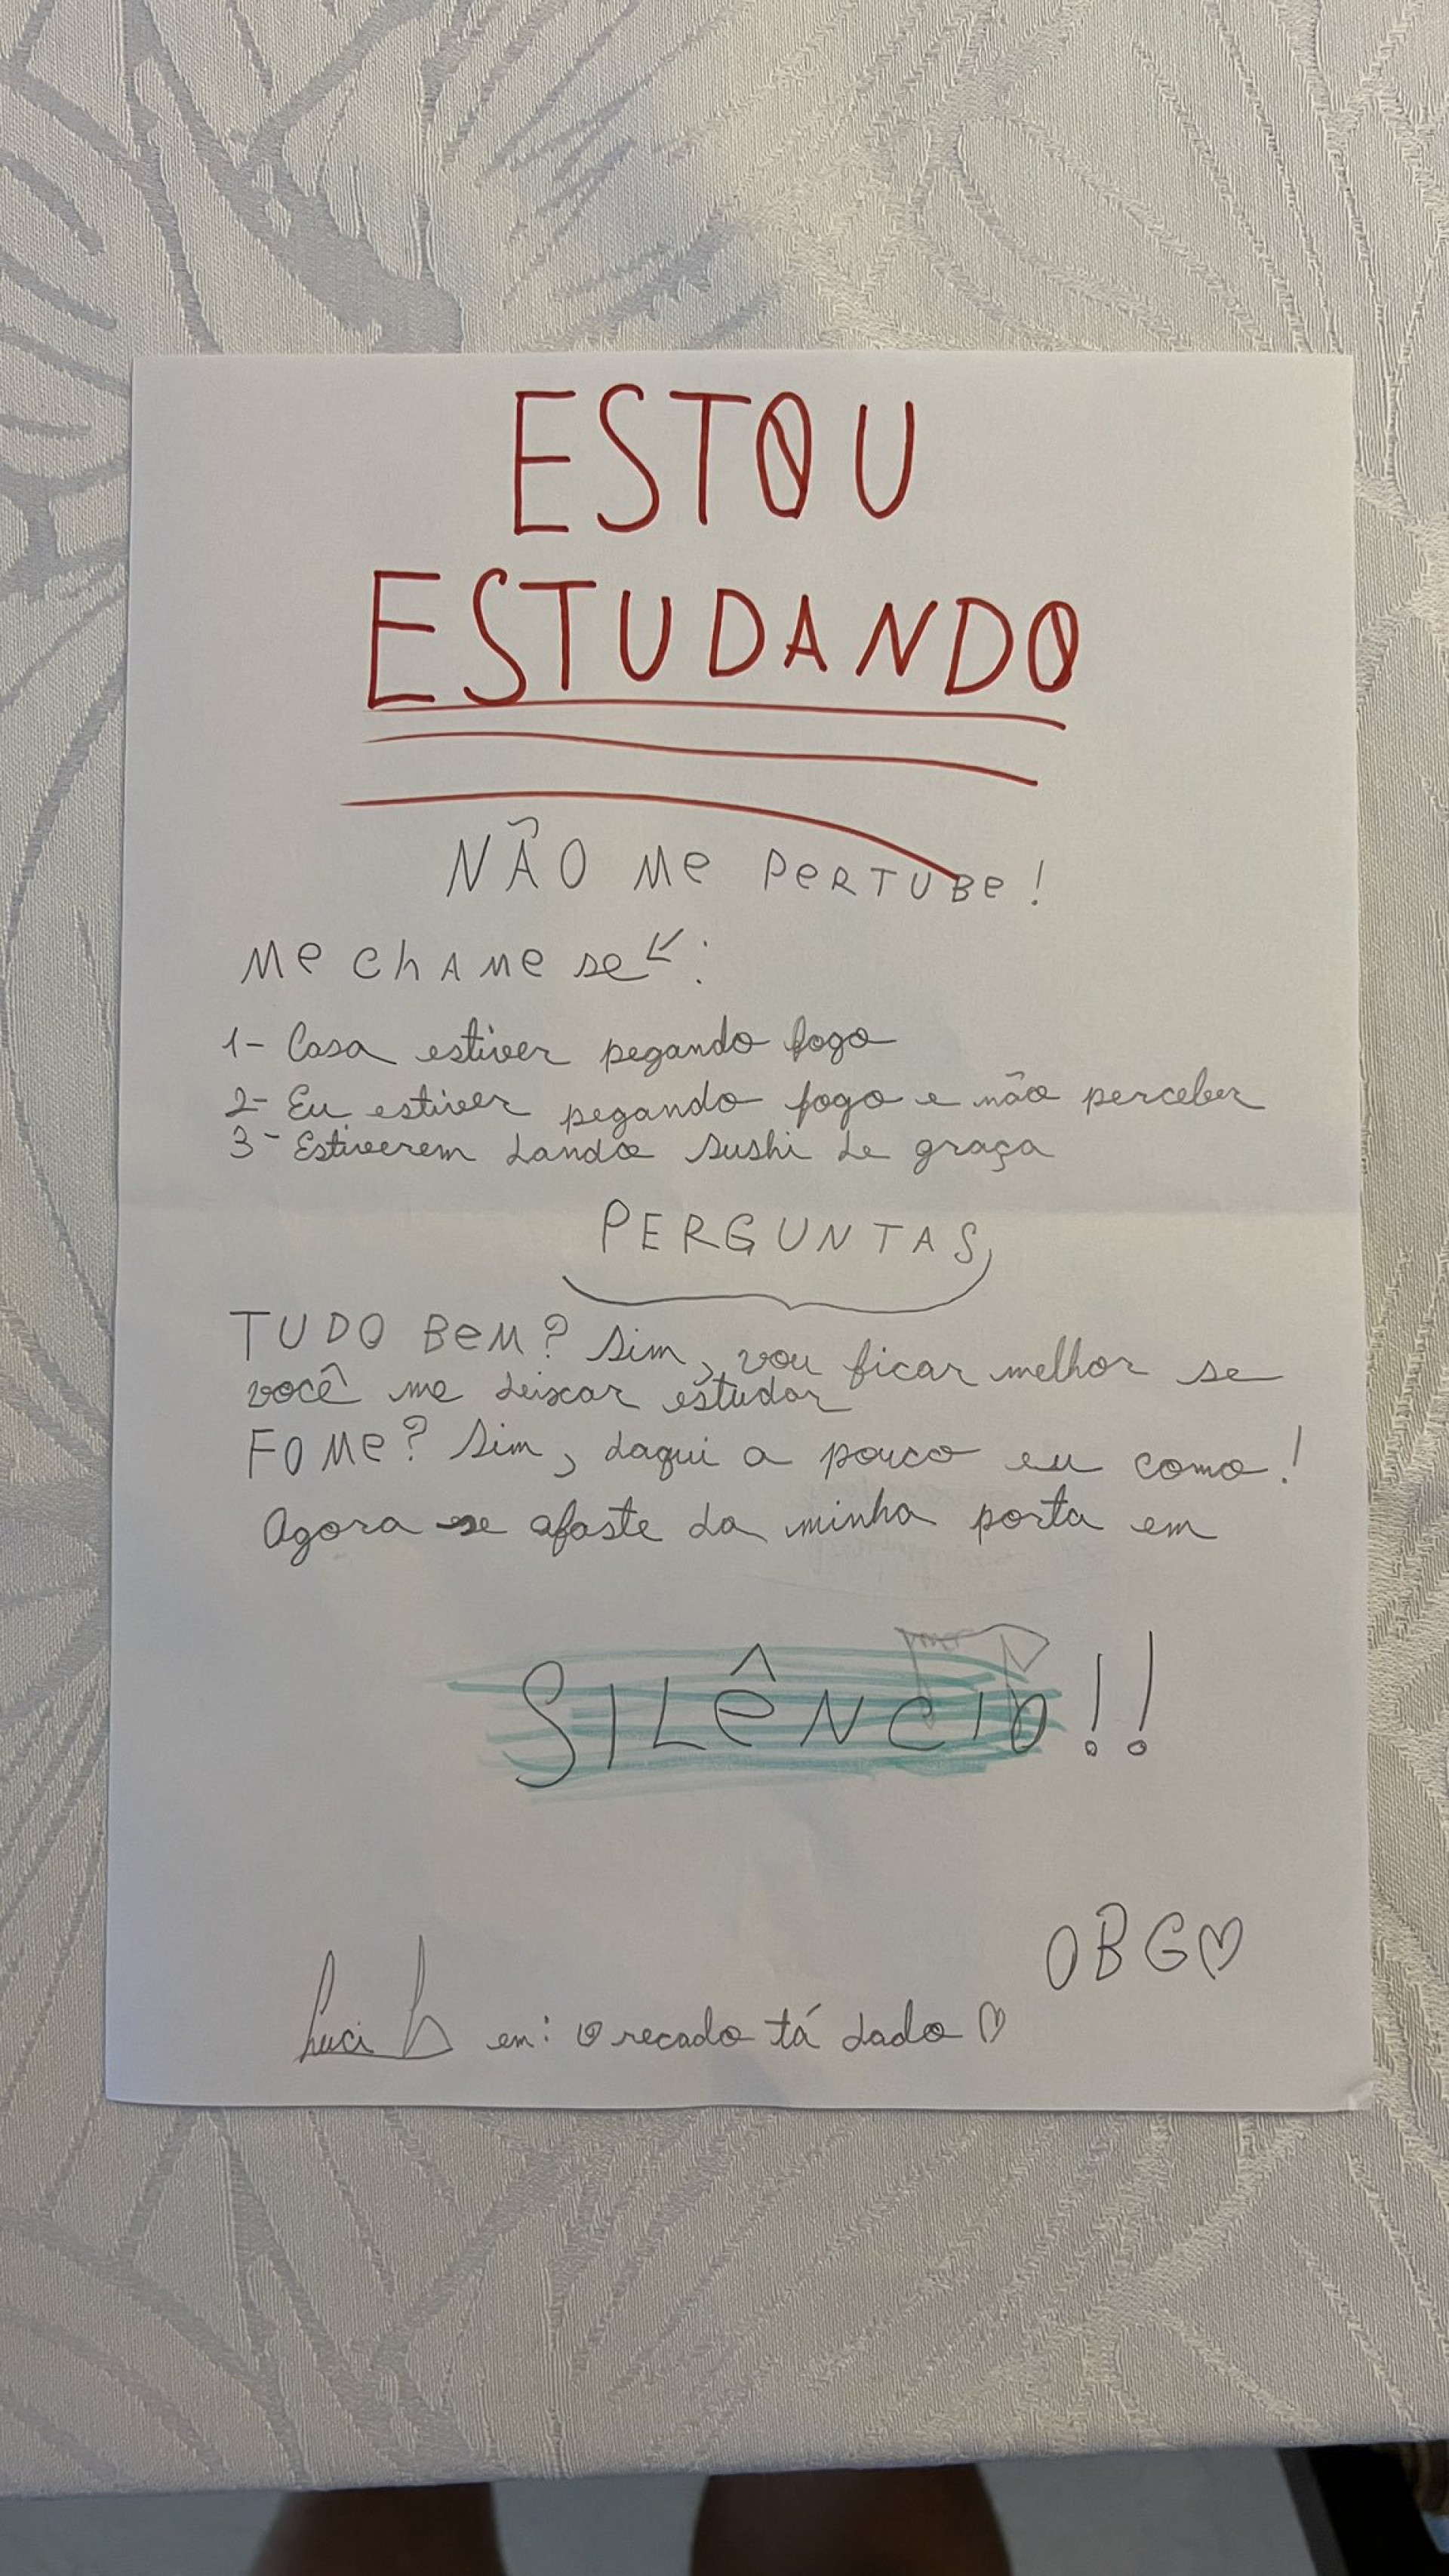 ESTOU
ESTUDANDO
NÃO Me PeRTUBe!
Me ChAMe se ↙:
1- Casa estiver pegando fogo
2- Eu estiver pegando fogo e não perceber
3- Estiverem dando sushi de graça
PERGUNTAS
TUDO BeM? Sim, vou ficar melhor se
você me deixar estudar
FOMe? Sim, daqui a pouco eu como!
Agora se afaste da minha porta em
SILÊNCIO!!
OBG♡
Luci em: O recado tá dado ♡